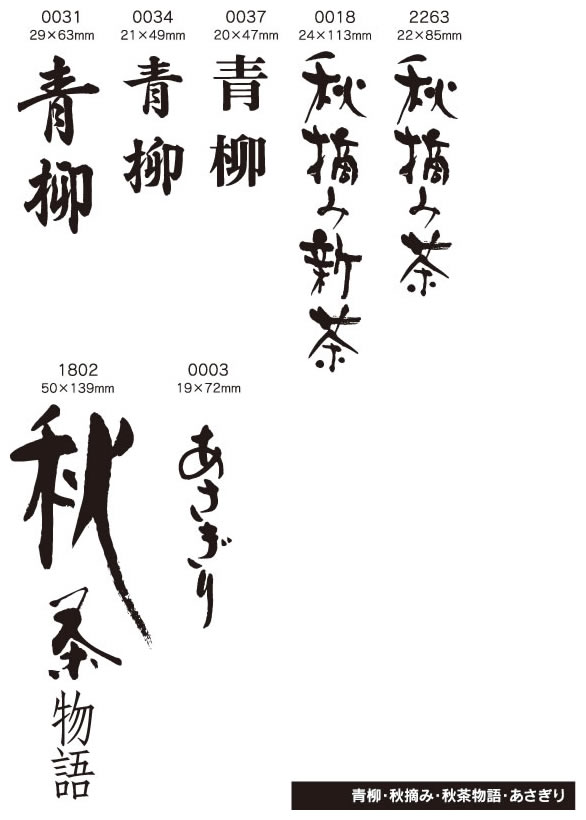 0031
29×63mm
青柳
0034
21×49mm
青柳
0037
20×47mm
青柳
0018
24×113mm
秋摘み新茶
2263
22×85mm
秋摘み茶
1802
50×139mm
秋茶物語
0003
19×72mm
あさぎり
青柳・秋摘み・秋茶物語・あさぎり